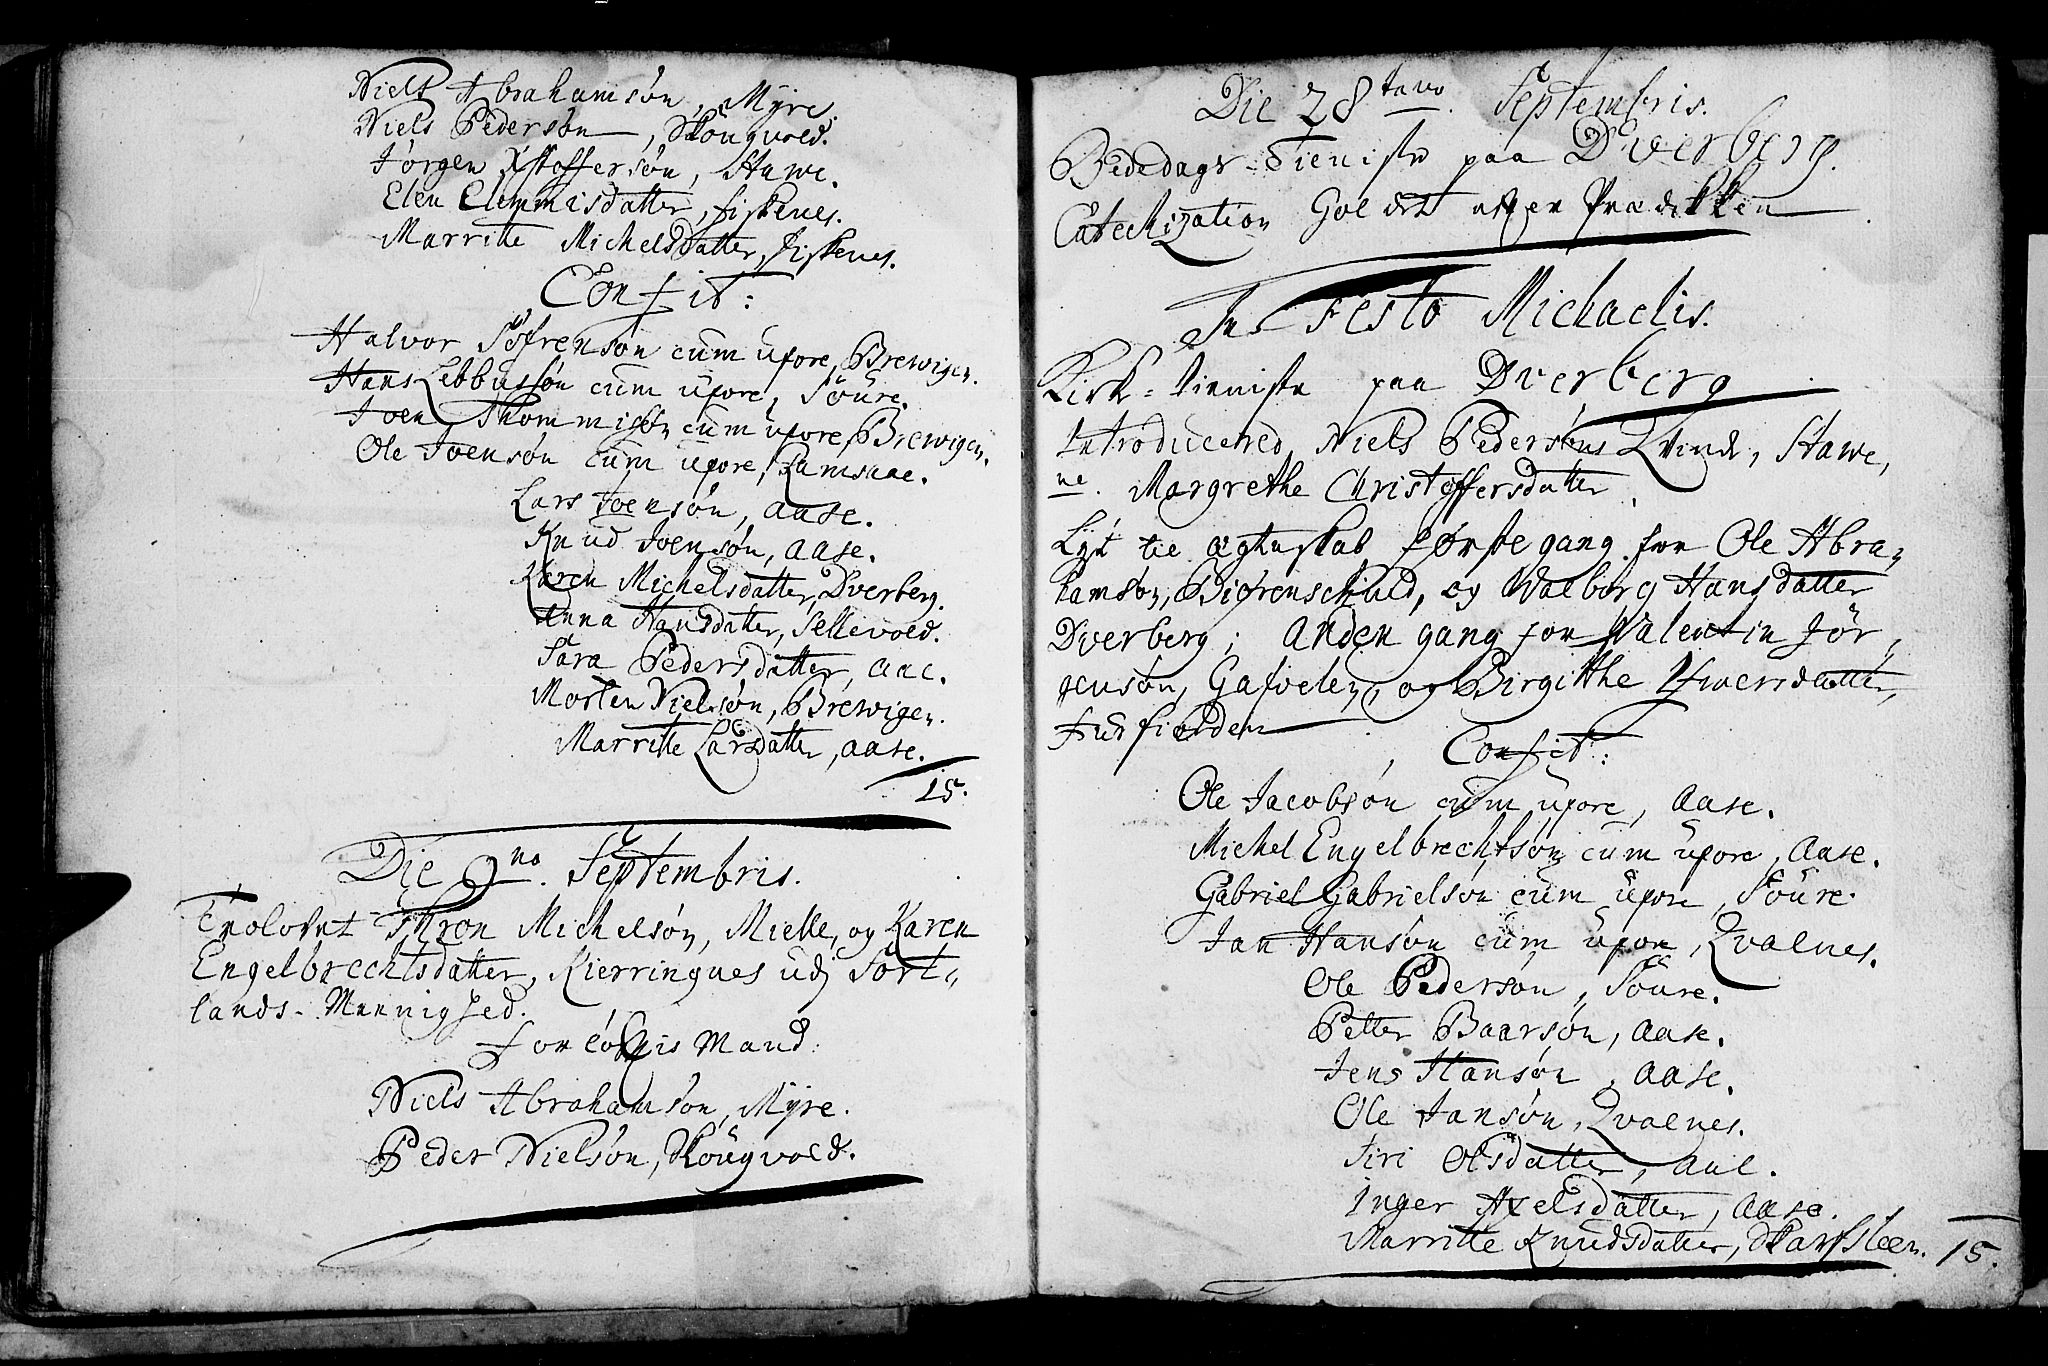 Niels Abrahamsön, Myre.
Niels Pedersön, Skougvold.
Jørgen Xstoffersön, Hawe.
Elen Clemmisdatter, fiskenes.
Marritte Michelsdatter, fiskenes.
Confit:
Halvor Söfrensön cum uxore, Brewigen.
Hans Lebbussön cum uxore, Soure.
Joen Thommissön cum uxore, Brewigen.
Ole Joensön cum uxore, Ramsaae.
Lars Joensön, Aase.
Knud Joensön, Aase.
Karen Michelsdatter, Dverberg.
Anna Hansdatter, Sellevold.
Sara Pedersdatter, Aae.
Morten Nielsön, Brewigen.
Marritte Larsdatter, Aase.
15.
Die 9no. Septembris.
Trolovet Thron Michelsön, Mielle, og Karen
Engelbrechtsdatter, Kierringnes udj Sort-
lands-Mennighed.
Forlöffnis Mænd:
Niels Abrahamsön, Myre.
Peder Nielsön, Skougvold.
Die 28tavo. Septembris.
Bededags-Tieniste paa Dverberg.
Catechization holdt efter Prædikken.
In Festo Michaelis.
Kirk-tieniste paa Dverberg
Introducered Niels Pedersöns Qvinde, Hawe,
ne. Margrethe Christoffersdatter.
Lyst til Ægteskab første gang for Ole Abra-
hamsön, Biörnschiuld, og Walborg Hansdatter
Dverberg; Anden gang for Valentin Jör-
gensön, Gafvelen, og Birgitthe Ifwersdatter,
fusfiorden
Confit:
Ole Jacobsön cum uxore, Aase.
Michel Engelbrechtsön cum uxore, Aase.
Gabriel Gabrielsön cum uxore, Soure.
Jan Hansön cum uxore, Qvalnes.
Ole Pedersön, Soure.
Petter Baarsön, Aase.
Jens Hansön, Aase.
Ole Jansön, Qvalnes.
Siri Olsdatter, Aae.
Inger Axelsdatter, Aase.
Marritte Knudsdatter, Skarfsteen.
15.